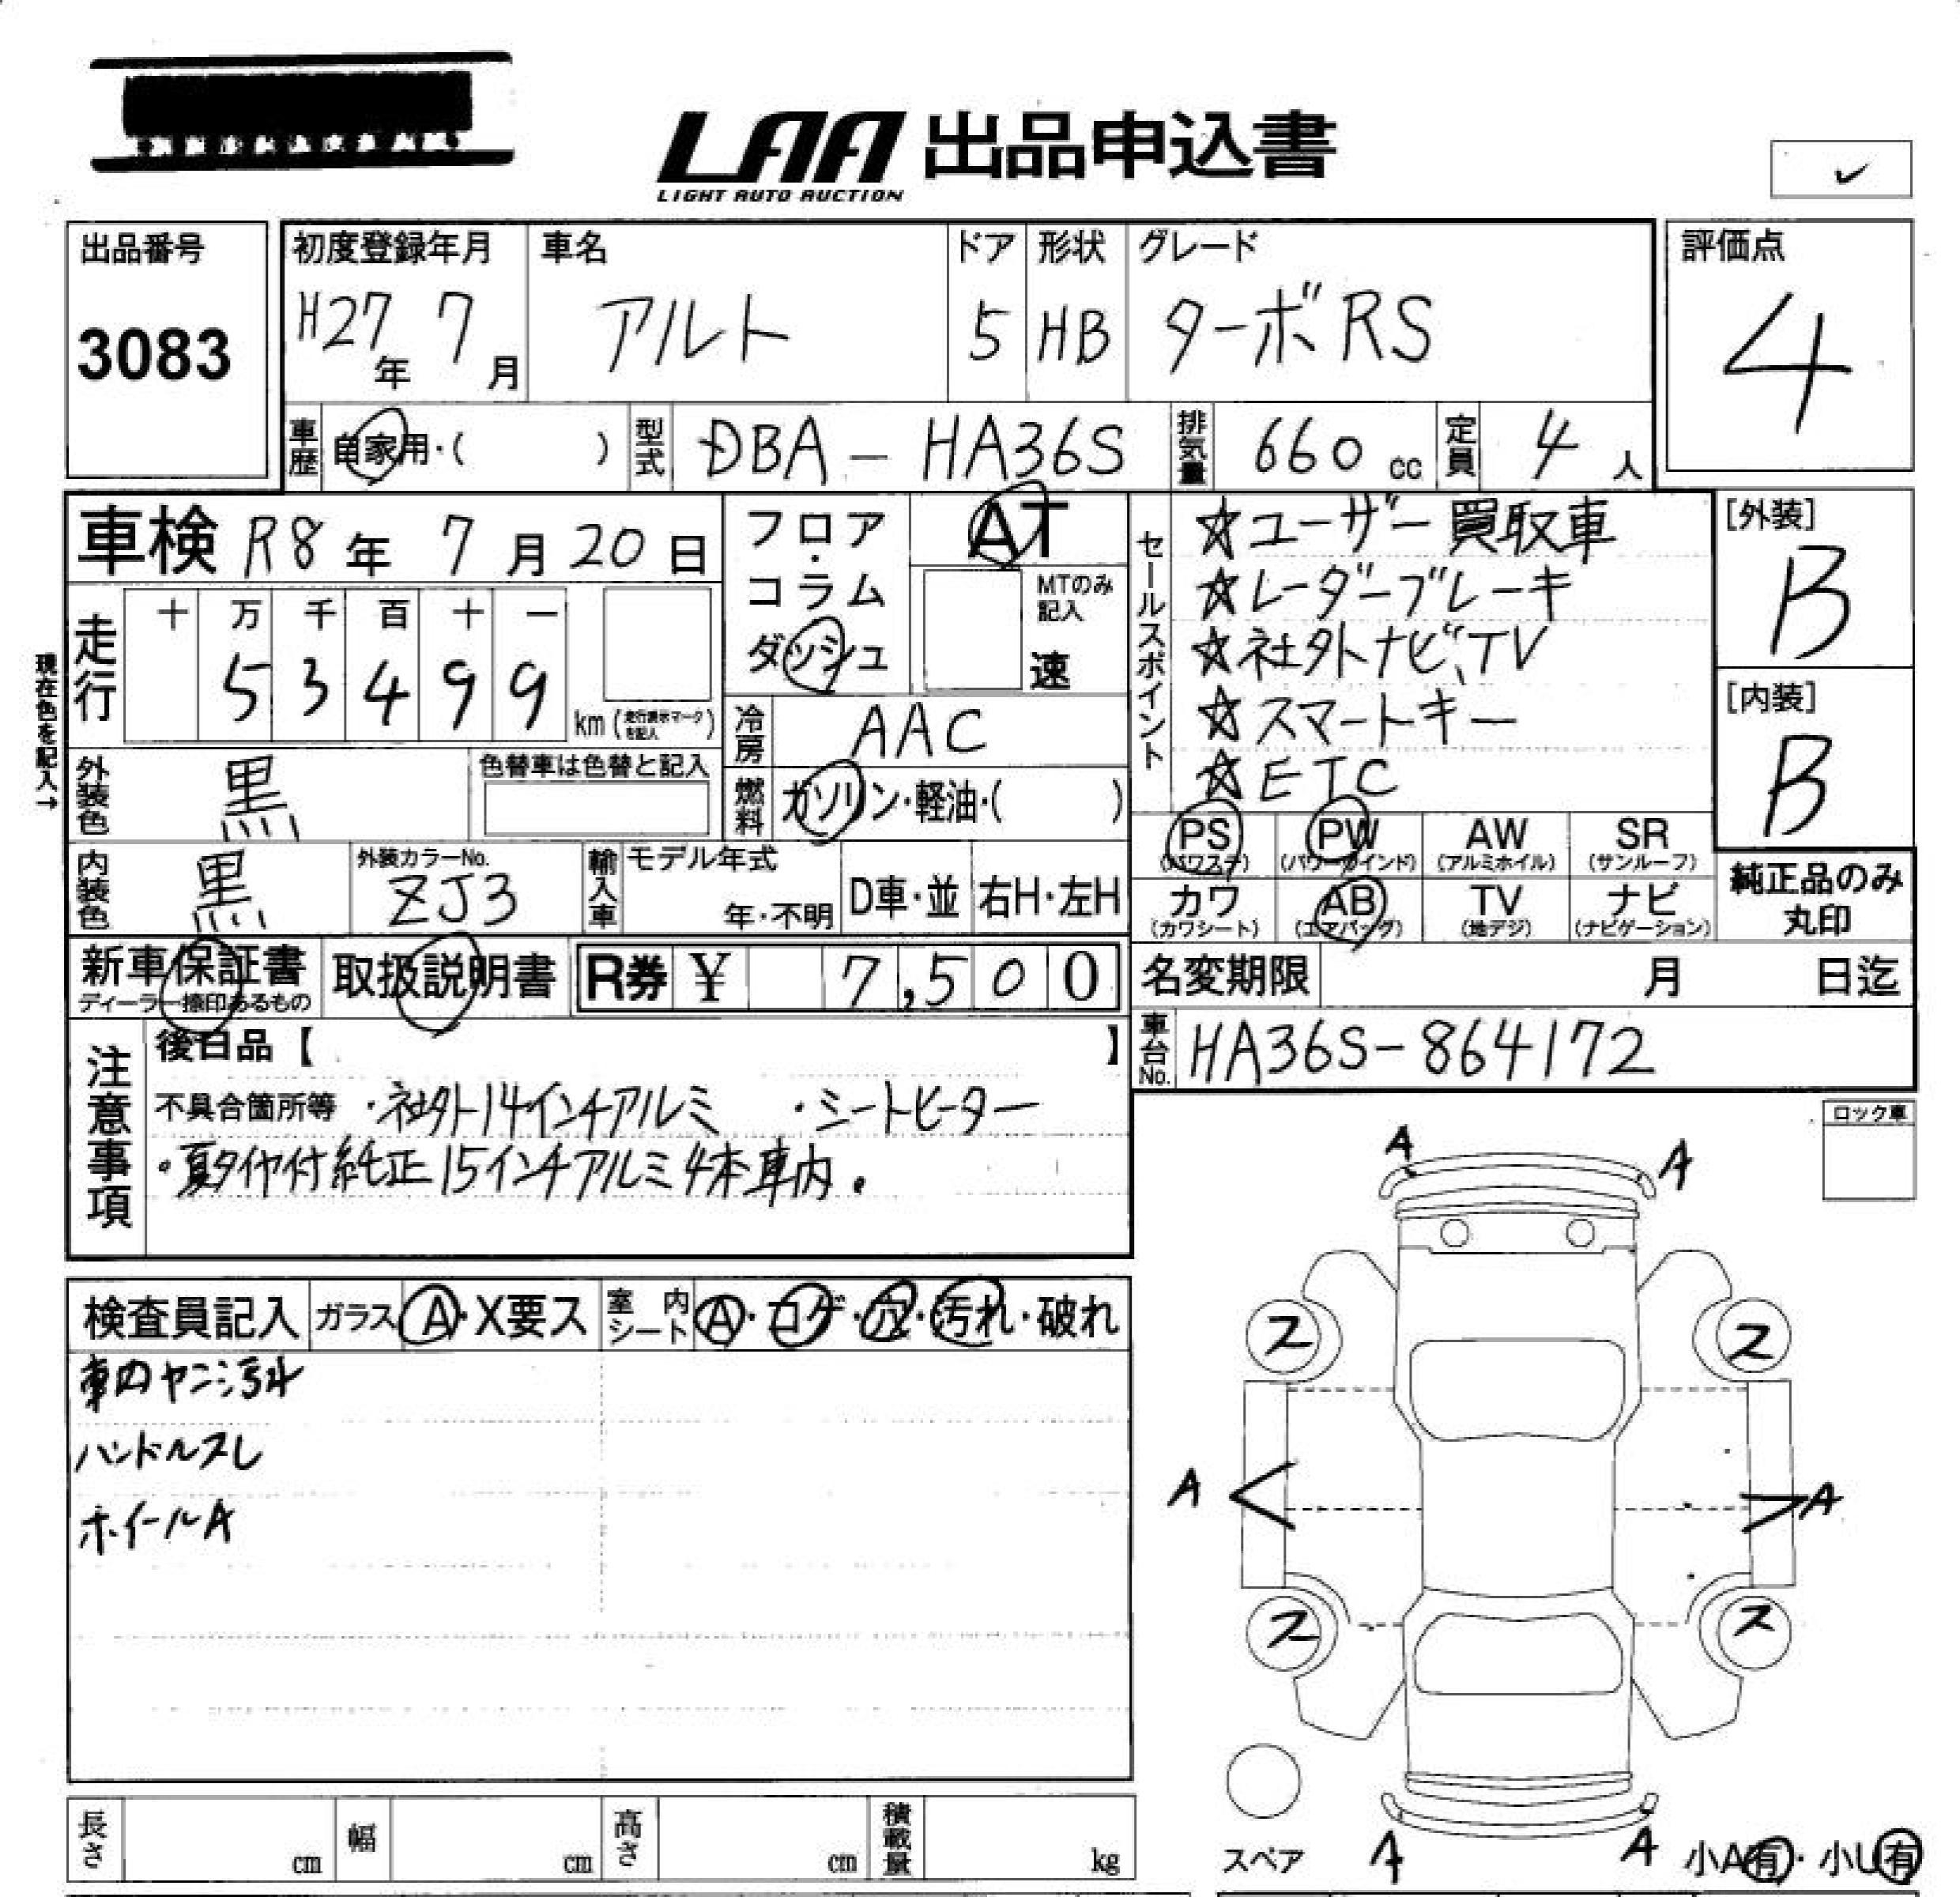 LAA 出品申込書
LIGHT AUTO AUCTION
出品番号
3083
初度登録年月
H27年 7月
車名
アルト
ドア
5
形状
HB
グレード
ターボRS
評価点
4
車歴 自家用・( )
型式 DBA-HA36S
排気量 660 cc
定員 4 人
車検 R8年 7月 20日
フロア・コラム
ダッシュ
AT
MTのみ記入
速
セールスポイント
☆ユーザー買取車
☆レーダーブレーキ
☆社外ナビ、TV
☆スマートキー
☆ETC
[外装]
B
[内装]
B
現在色を記入→
走行
十 万 千 百 十 一
5 3 4 9 9
km (走行表示マークを記入)
冷房 AAC
燃料 ガソリン・軽油・( )
外装色 黒
色替車は色替と記入
内装色 黒
外装カラーNo.
ZJ3
輸入車 モデル年式
年・不明
D車・並
右H・左H
PS (パワステ)
PW (パワーウインド)
AW (アルミホイル)
SR (サンルーフ)
カワ (カワシート)
AB (エアバッグ)
TV (地デジ)
ナビ (ナビゲーション)
純正品のみ丸印
新車保証書
ディーラー捺印あるもの
取扱説明書
R券 ¥ 7,500
名変期限 月 日迄
車台No. HA36S-864172
注意事項
後日品【 】
不具合箇所等 ・社外14インチアルミ ・シートヒーター
・夏タイヤ付純正15インチアルミ4本車内。
ロック車
検査員記入
ガラス A・X要ス
室内シート A・コゲ・穴・汚れ・破れ
車内ヤニ汚れ
ハンドルスレ
ホイールA
A A
ス ス
A A
ス ス
A A
スペア
小A有・小U有
長さ cm
幅 cm
高さ cm
積載量 kg